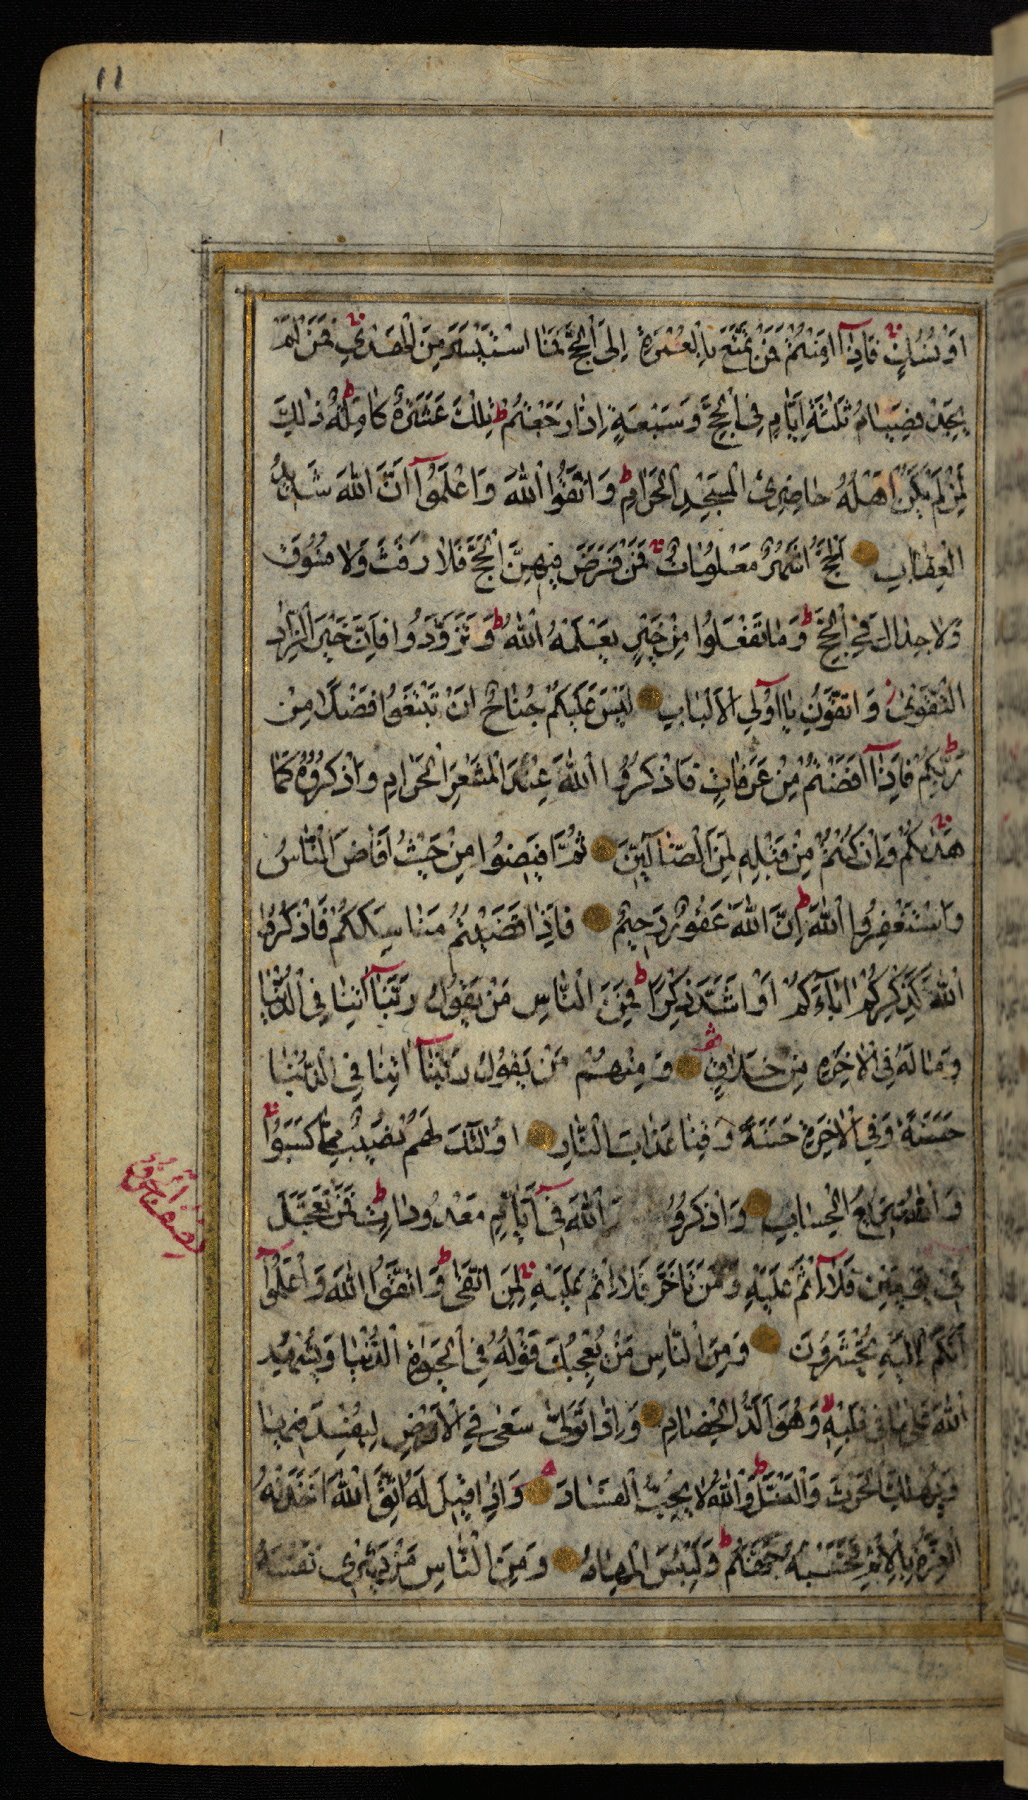 ١١
اَوْ نُسُكٍ فَاِذَآ اَمِنْتُمْ فَمَنْ تَمَتَّعَ بِالْعُمْرَةِ اِلَى الْحَجِّ فَمَا اسْتَيْسَرَ مِنَ الْهَدْيِ فَمَنْ لَمْ
يَجِدْ فَصِيَامُ ثَلٰثَةِ اَيَّامٍ فِي الْحَجِّ وَسَبْعَةٍ اِذَا رَجَعْتُمْ تِلْكَ عَشَرَةٌ كَامِلَةٌ ذٰلِكَ
لِمَنْ لَمْ يَكُنْ اَهْلُهُ حَاضِرِي الْمَسْجِدِ الْحَرَامِ وَاتَّقُوا اللّٰهَ وَاعْلَمُوٓا اَنَّ اللّٰهَ شَدِيدُ
الْعِقَابِ اَلْحَجُّ اَشْهُرٌ مَعْلُومَاتٌ فَمَنْ فَرَضَ فِيهِنَّ الْحَجَّ فَلَا رَفَثَ وَلَا فُسُوقَ
وَلَا جِدَالَ فِي الْحَجِّ وَمَا تَفْعَلُوا مِنْ خَيْرٍ يَعْلَمْهُ اللّٰهُ وَتَزَوَّدُوا فَاِنَّ خَيْرَ الزَّادِ
التَّقْوٰى وَاتَّقُونِ يَآ اُولِي الْاَلْبَابِ لَيْسَ عَلَيْكُمْ جُنَاحٌ اَنْ تَبْتَغُوا فَضْلًا مِنْ
رَبِّكُمْ فَاِذَآ اَفَضْتُمْ مِنْ عَرَفَاتٍ فَاذْكُرُوا اللّٰهَ عِنْدَ الْمَشْعَرِ الْحَرَامِ وَاذْكُرُوهُ كَمَا
هَدٰيكُمْ وَاِنْ كُنْتُمْ مِنْ قَبْلِهِ لَمِنَ الضَّآلِّينَ ثُمَّ اَفِيضُوا مِنْ حَيْثُ اَفَاضَ النَّاسُ
وَاسْتَغْفِرُوا اللّٰهَ اِنَّ اللّٰهَ غَفُورٌ رَحِيمٌ فَاِذَا قَضَيْتُمْ مَنَاسِكَكُمْ فَاذْكُرُوا
اللّٰهَ كَذِكْرِكُمْ اٰبَآءَكُمْ اَوْ اَشَدَّ ذِكْرًا فَمِنَ النَّاسِ مَنْ يَقُولُ رَبَّنَآ اٰتِنَا فِي الدُّنْيَا
وَمَا لَهُ فِي الْاٰخِرَةِ مِنْ خَلَاقٍ وَمِنْهُمْ مَنْ يَقُولُ رَبَّنَآ اٰتِنَا فِي الدُّنْيَا
حَسَنَةً وَفِي الْاٰخِرَةِ حَسَنَةً وَقِنَا عَذَابَ النَّارِ اُولٰٓئِكَ لَهُمْ نَصِيبٌ مِمَّا كَسَبُوا
وَاللّٰهُ سَرِيعُ الْحِسَابِ وَاذْكُرُوا اللّٰهَ فِيٓ اَيَّامٍ مَعْدُودَاتٍ فَمَنْ تَعَجَّلَ
فِي يَوْمَيْنِ فَلَآ اِثْمَ عَلَيْهِ وَمَنْ تَاَخَّرَ فَلَآ اِثْمَ عَلَيْهِ لِمَنِ اتَّقٰى وَاتَّقُوا اللّٰهَ وَاعْلَمُوٓا
اَنَّكُمْ اِلَيْهِ تُحْشَرُونَ وَمِنَ النَّاسِ مَنْ يُعْجِبُكَ قَوْلُهُ فِي الْحَيٰوةِ الدُّنْيَا وَيُشْهِدُ
اللّٰهَ عَلٰى مَا فِي قَلْبِهِ وَهُوَ اَلَدُّ الْخِصَامِ وَاِذَا تَوَلّٰى سَعٰى فِي الْاَرْضِ لِيُفْسِدَ فِيهَا
وَيُهْلِكَ الْحَرْثَ وَالنَّسْلَ وَاللّٰهُ لَا يُحِبُّ الْفَسَادَ وَاِذَا قِيلَ لَهُ اتَّقِ اللّٰهَ اَخَذَتْهُ
الْعِزَّةُ بِالْاِثْمِ فَحَسْبُهُ جَهَنَّمُ وَلَبِئْسَ الْمِهَادُ وَمِنَ النَّاسِ مَنْ يَشْرِي نَفْسَهُ